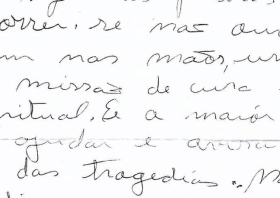 orrer. se nas ou
um nas mãos, un
missão de cura
ritual. E a maiór
ajudar e
das tragedias.. M